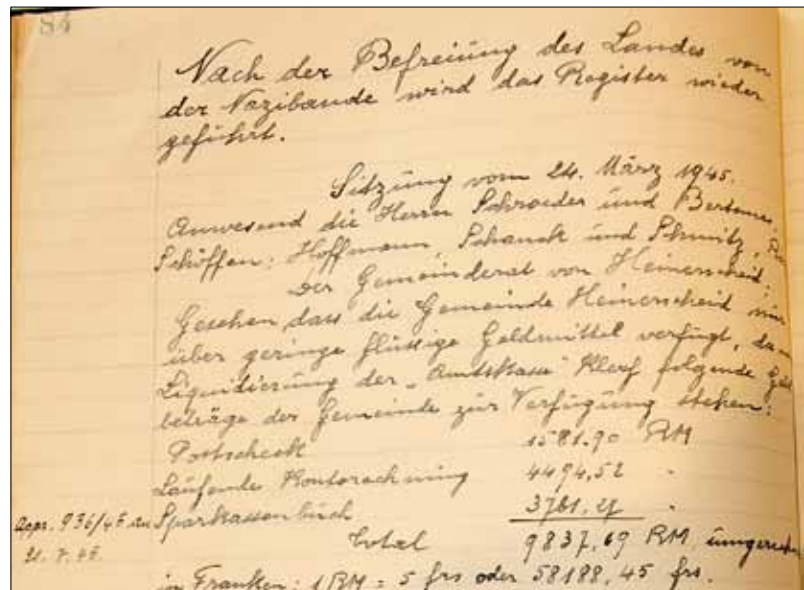 84
Nach der Befreiung des Landes von
der Nazibande wird das Register wieder
geführt.
Sitzung vom 24. März 1945.
Anwesend die Herrn Schroeder und Bertemes,
Schöffen; Hoffmann, Schanck und Schmitz,
Der Gemeinderat von Heinerscheid,
Gesehen dass die Gemeinde Heinerscheid nur
über geringe flüssige Geldmittel verfügt, da
Liquidierung der „Amtskasse" Klerf folgende
beträge der Gemeinde zur Verfügung stehen:
Postscheck 1581.90 RM
Laufende Kontorechnung 4494,52 "
Sparkassenbuch "
Total 9837,69 RM
in Franken: 1 RM = 5 frs oder 58188,45 frs.